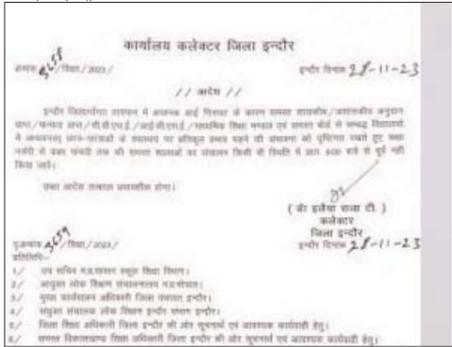 कार्यालय कलेक्टर जिला इन्दौर
क्रमांक 3658 /शिक्षा/2023/ इन्दौर दिनांक 28-11-23
// आदेश //
इन्दौर जिलान्तर्गत तापमान में अचानक आई गिरावट के कारण समस्त शासकीय/अशासकीय अनुदान
प्राप्त/मान्यता प्राप्त/सी.बी.एस.ई./आई.सी.एस.ई./माध्यमिक शिक्षा मण्डल एवं समस्त बोर्ड से सम्बद्ध विद्यालयों
में अध्ययनरत् छात्र-छात्राओं के स्वास्थ्य पर प्रतिकूल प्रभाव पड़ने की संभावना को दृष्टिगत रखते हुए कक्षा
नर्सरी से कक्षा पांचवी तक की समस्त शालाओं का संचालन किसी भी स्थिति में प्रातः 9.00 बजे से पूर्व नहीं
किया जावे।
उक्त आदेश तत्काल प्रभावशील होगा।
( डॉ इलैया राजा टी. )
कलेक्टर
जिला इन्दौर
पृ.क्रमांक 3659 /शिक्षा/2023/ इन्दौर दिनांक 28-11-23
प्रतिलिपि:-
1/ उप सचिव म.प्र.शासन स्कूल शिक्षा विभाग।
2/ आयुक्त लोक शिक्षण संचालनालय म.प्र.भोपाल।
3/ मुख्य कार्यपालन अधिकारी जिला पंचायत इन्दौर।
4/ संयुक्त संचालक लोक शिक्षण इन्दौर संभाग इन्दौर।
5/ जिला शिक्षा अधिकारी जिला इन्दौर की ओर सूचनार्थ एवं आवश्यक कार्यवाही हेतु।
6/ समस्त विकासखण्ड शिक्षा अधिकारी जिला इन्दौर की ओर सूचनार्थ एवं आवश्यक कार्यवाही हेतु।